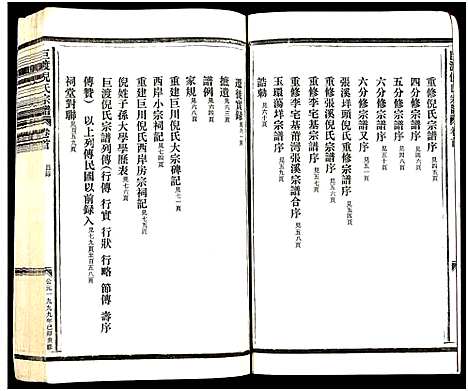 巨渡倪氏宗譜 卷首
重修倪氏宗譜序
四分修宗譜序
五分修宗譜序
六分修宗譜序
六分修宗譜又序 見五一頁
張溪垟頭倪氏重修宗譜序 見五四頁
重修張溪倪氏宗譜序 見五五頁
重修李宅基宗譜序 見五七頁
重修李宅基莆灣張溪宗譜合序
玉環蕩垟宗譜序
誥勅 見六十頁
遷徙實錄
摭遺 見六三頁
譜例
家規 見六八頁
重建巨川倪氏大宗碑記 見七一頁
西岸小宗祠記 見七四頁
重建巨川倪氏西岸房宗祠記 見七五頁
倪姓子孫大學學歷表 見七六頁
巨渡倪氏宗譜列傳（行傳 行實 行狀 行略 節傳 壽序
傳贊） 以上列傳民國以前録入
祠堂對聯
巨渡倪氏宗譜 卷首
目錄
公元一九九九年己卯重修